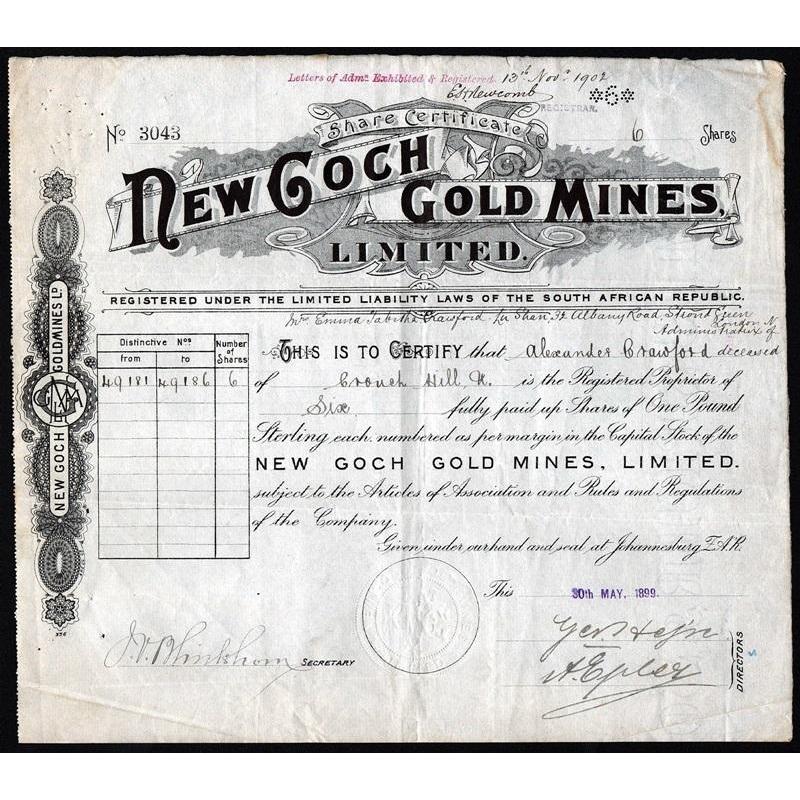 Letters of Admn Exhibited & Registered. 13th Novr 1902
E. Newcomb
REGISTRAR.
*6*
No 3043
6 Shares
Share Certificate
NEW GOCH
GOLD MINES,
LIMITED.
REGISTERED UNDER THE LIMITED LIABILITY LAWS OF THE SOUTH AFRICAN REPUBLIC.
Mrs Emma Tabitha Crawford Lu Shan, 32 Albany Road, Stroud Green
London N.
Administratrix of
THIS IS TO CERTIFY that Alexander Crawford deceased
of Crouch Hill, N. is the Registered Proprietor of
Six fully paid up Shares of One Pound
Sterling each, numbered as per margin in the Capital Stock of the
NEW GOCH GOLD MINES, LIMITED.
subject to the Articles of Association and Rules and Regulations
of the Company.
Given under our hand and seal at Johannesburg Z.A.R.
This 30th MAY. 1899.
Distinctive Nos
from to
Number of Shares
49181 49186 6
NEW GOCH GOLDMINES LD
336
SECRETARY
A. Epler
DIRECTORS